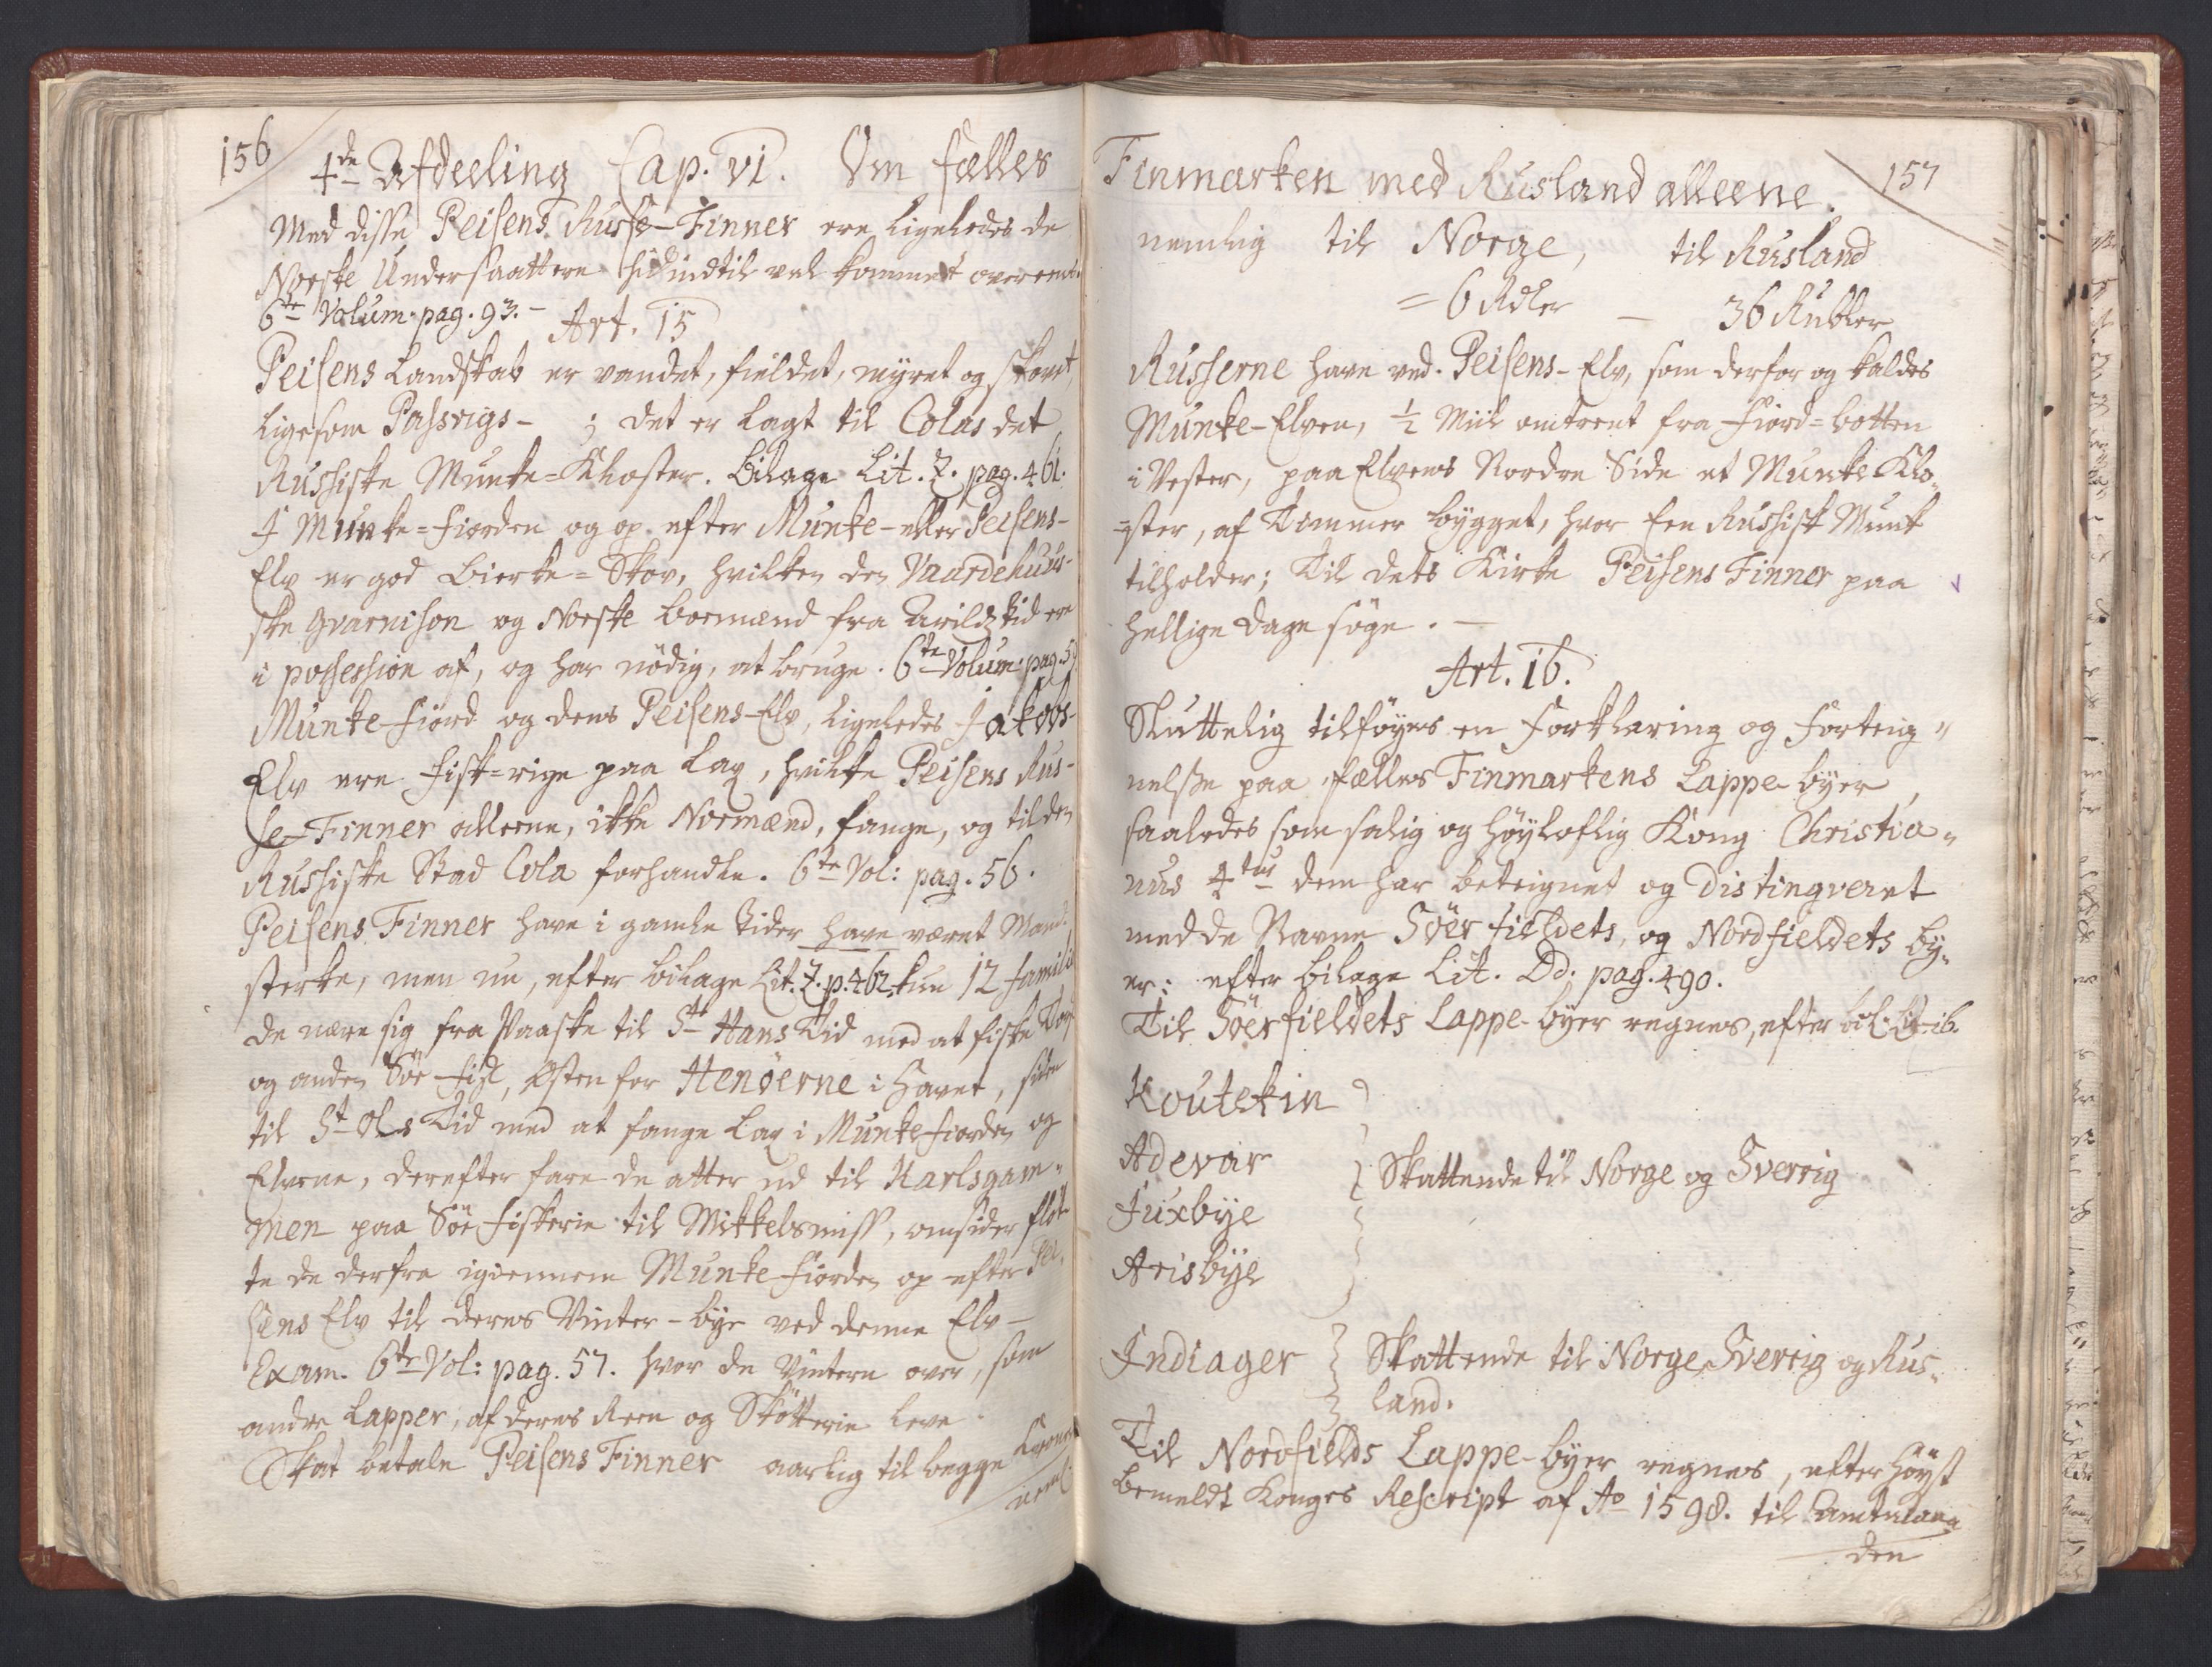 156
4de Afdeeling Cap. VI. Om fælles
Med disse Peisens Russe-Finner ere ligeledes de
Norske Undersaattere hidindtil vel kommet overeent.
6te Volum. pag. 93. –
Art. 15
Peisens Landskab er vandet, fieldet, myret og skovet,
ligesom Passvigs- ; det er lagt til Colas det
Russiske Munke=Kloster. Bilage Lit. Z. pag. 461.
I Munke=Fiorden og op efter Munke- eller Peisens-
Elv er god Birke=Skov, hvilken den Vaardehuus-
ske Gvarnison og Norske Boemænd fra Arilds tid ere
i possession af, og har nödig, at bruge. 6te Volum: pag. 57
Munke-Fiord og dens Peisens-Elv, ligeledes Jakobs-
Elv ere Fisk=rige paa Lax, hvilke Peisens Rus-
se-Finner alleene, ikke Normænd, fange, og til den
Russiske Stad Cola forhandle. 6te Vol: pag. 56.
Peisens Finner have i gamle Tider have været Mand-
sterke, men nu, efter bilage Lit. Z. p. 462, kun 12 famili
de nære sig fra Paaske til St Hans Tid med at fiske Torsk
og anden Söe-Fisk, Østen for Henöerne i Havet, siden
til St Ols Tid med at fange Lax i Munkefiorden og
Elvene, derefter fare de atter ud til Karlsgam=
men paa Söe-Fiskerie til Mikkelsmiss, omsider flöt
te de derfra igiennem Munke-Fiorden op efter Pei-
sens Elv til deres Vinter-bye ved denne Elv –
Exam. 6te Vol: pag. 57. hvor de Vintern over, som
andre Lapper, af deres Reen og Skötterie leve
Skat betale Peisens Finner aarlig til begge Kroner
neml.
157
Finmarken med Rusland alleene.
nemlig til Norge, til Rusland
= 6 Rdler – 36 Rubler
Russerne have ved Peisens-Elv, som derfor og kaldes
Munke-Elven, ½ Miil omtrent fra Fiord=botten
i Vester, paa Elvens Nordre Side et Munke Klo-
=ster, af Tömmer bygget, hvor Een Russisk Munk
tilholder; Til dets Kirke Peisens Finner paa
hellige Dage söge. –
Art. 16.
Sluttelig tilföyes en Forklaring og Forteig=
nelsse paa fælles Finmarkens Lappe-byer,
saaledes som salig og Höyloflig Kong Christia=
nus 4tus dem har beteignet og Distingveret
med de Navne Söer fieldets, og Nordfieldets by=
er: efter bilage Lit. Dd. pag. 490.
Til Söerfieldets Lappe-byer regnes, efter bil. Lit. ib.
Koutekin
Adevar } Skattende til Norge og Sverrig
Juxbye
Arisbye
Indiager } Skattende til Norge, Sverrig og Rus=
land.
Til Nordfields Lappe-byer regnes, efter Höyst
bemeldt Konges Rescript af Ao 1598. til Amtman
den